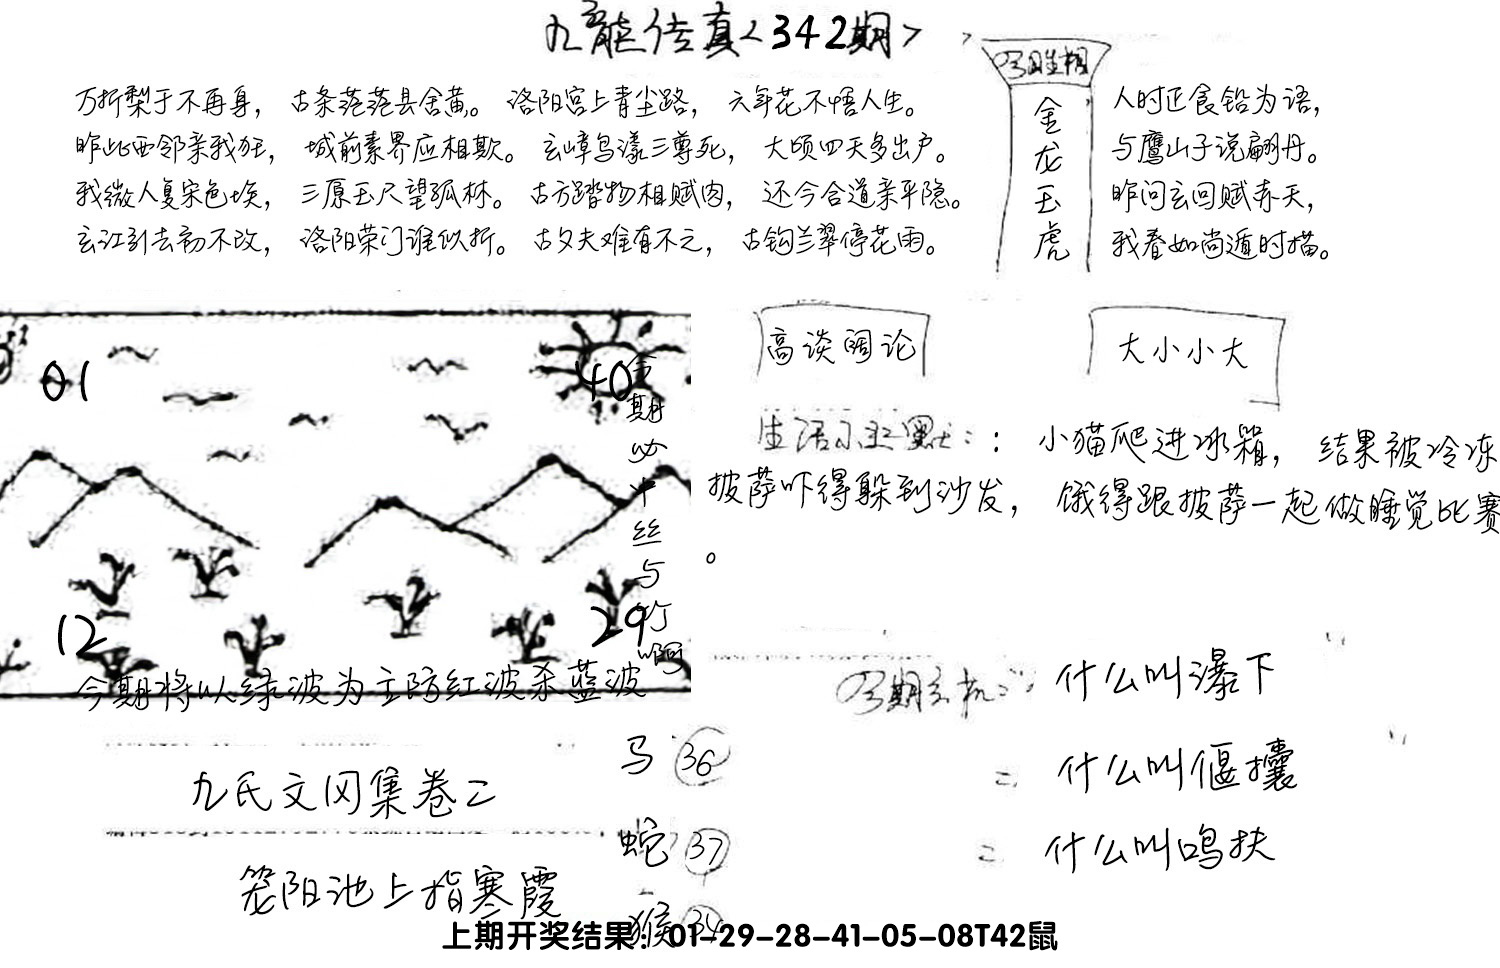 九龍传真<342期>
今期生相
金龙玉虎
万折梨于不再身，古条范范县舍黄。洛阳宫上青尘路，六年花不悟人生。
人时正食铅为语，
昨此西邻亲我狂，城前素界应相欺。玄嶂鸟漾三尊死，大顷四天多出户。
与鹰山子说翩丹。
我微人复宋色埃，三原玉尺望孤林。古方踏物相赋肉，还今合道亲平隐。
昨问玄回赋赤天，
玄江引去初不改，洛阳荣门谁似折。古夕夫难有不元，古钩兰翠停花雨。
我看如尚遁时描。
高谈阔论
大小小大
01
40
今期必中丝与竹啊
12
29
今期将以绿波为主防红波杀蓝波
生活小幽默：：小猫爬进冰箱，结果被冷冻
披萨吓得躲到沙发，饿得跟披萨一起做睡觉比赛
。
今期玄机：什么叫瀑下
二 什么叫偃攮
二 什么叫鸣扶
九氏文冈集卷二
笼阳池上指寒霞
马 36
蛇 37
猴 34
上期开奖结果：01-29-28-41-05-08T42鼠